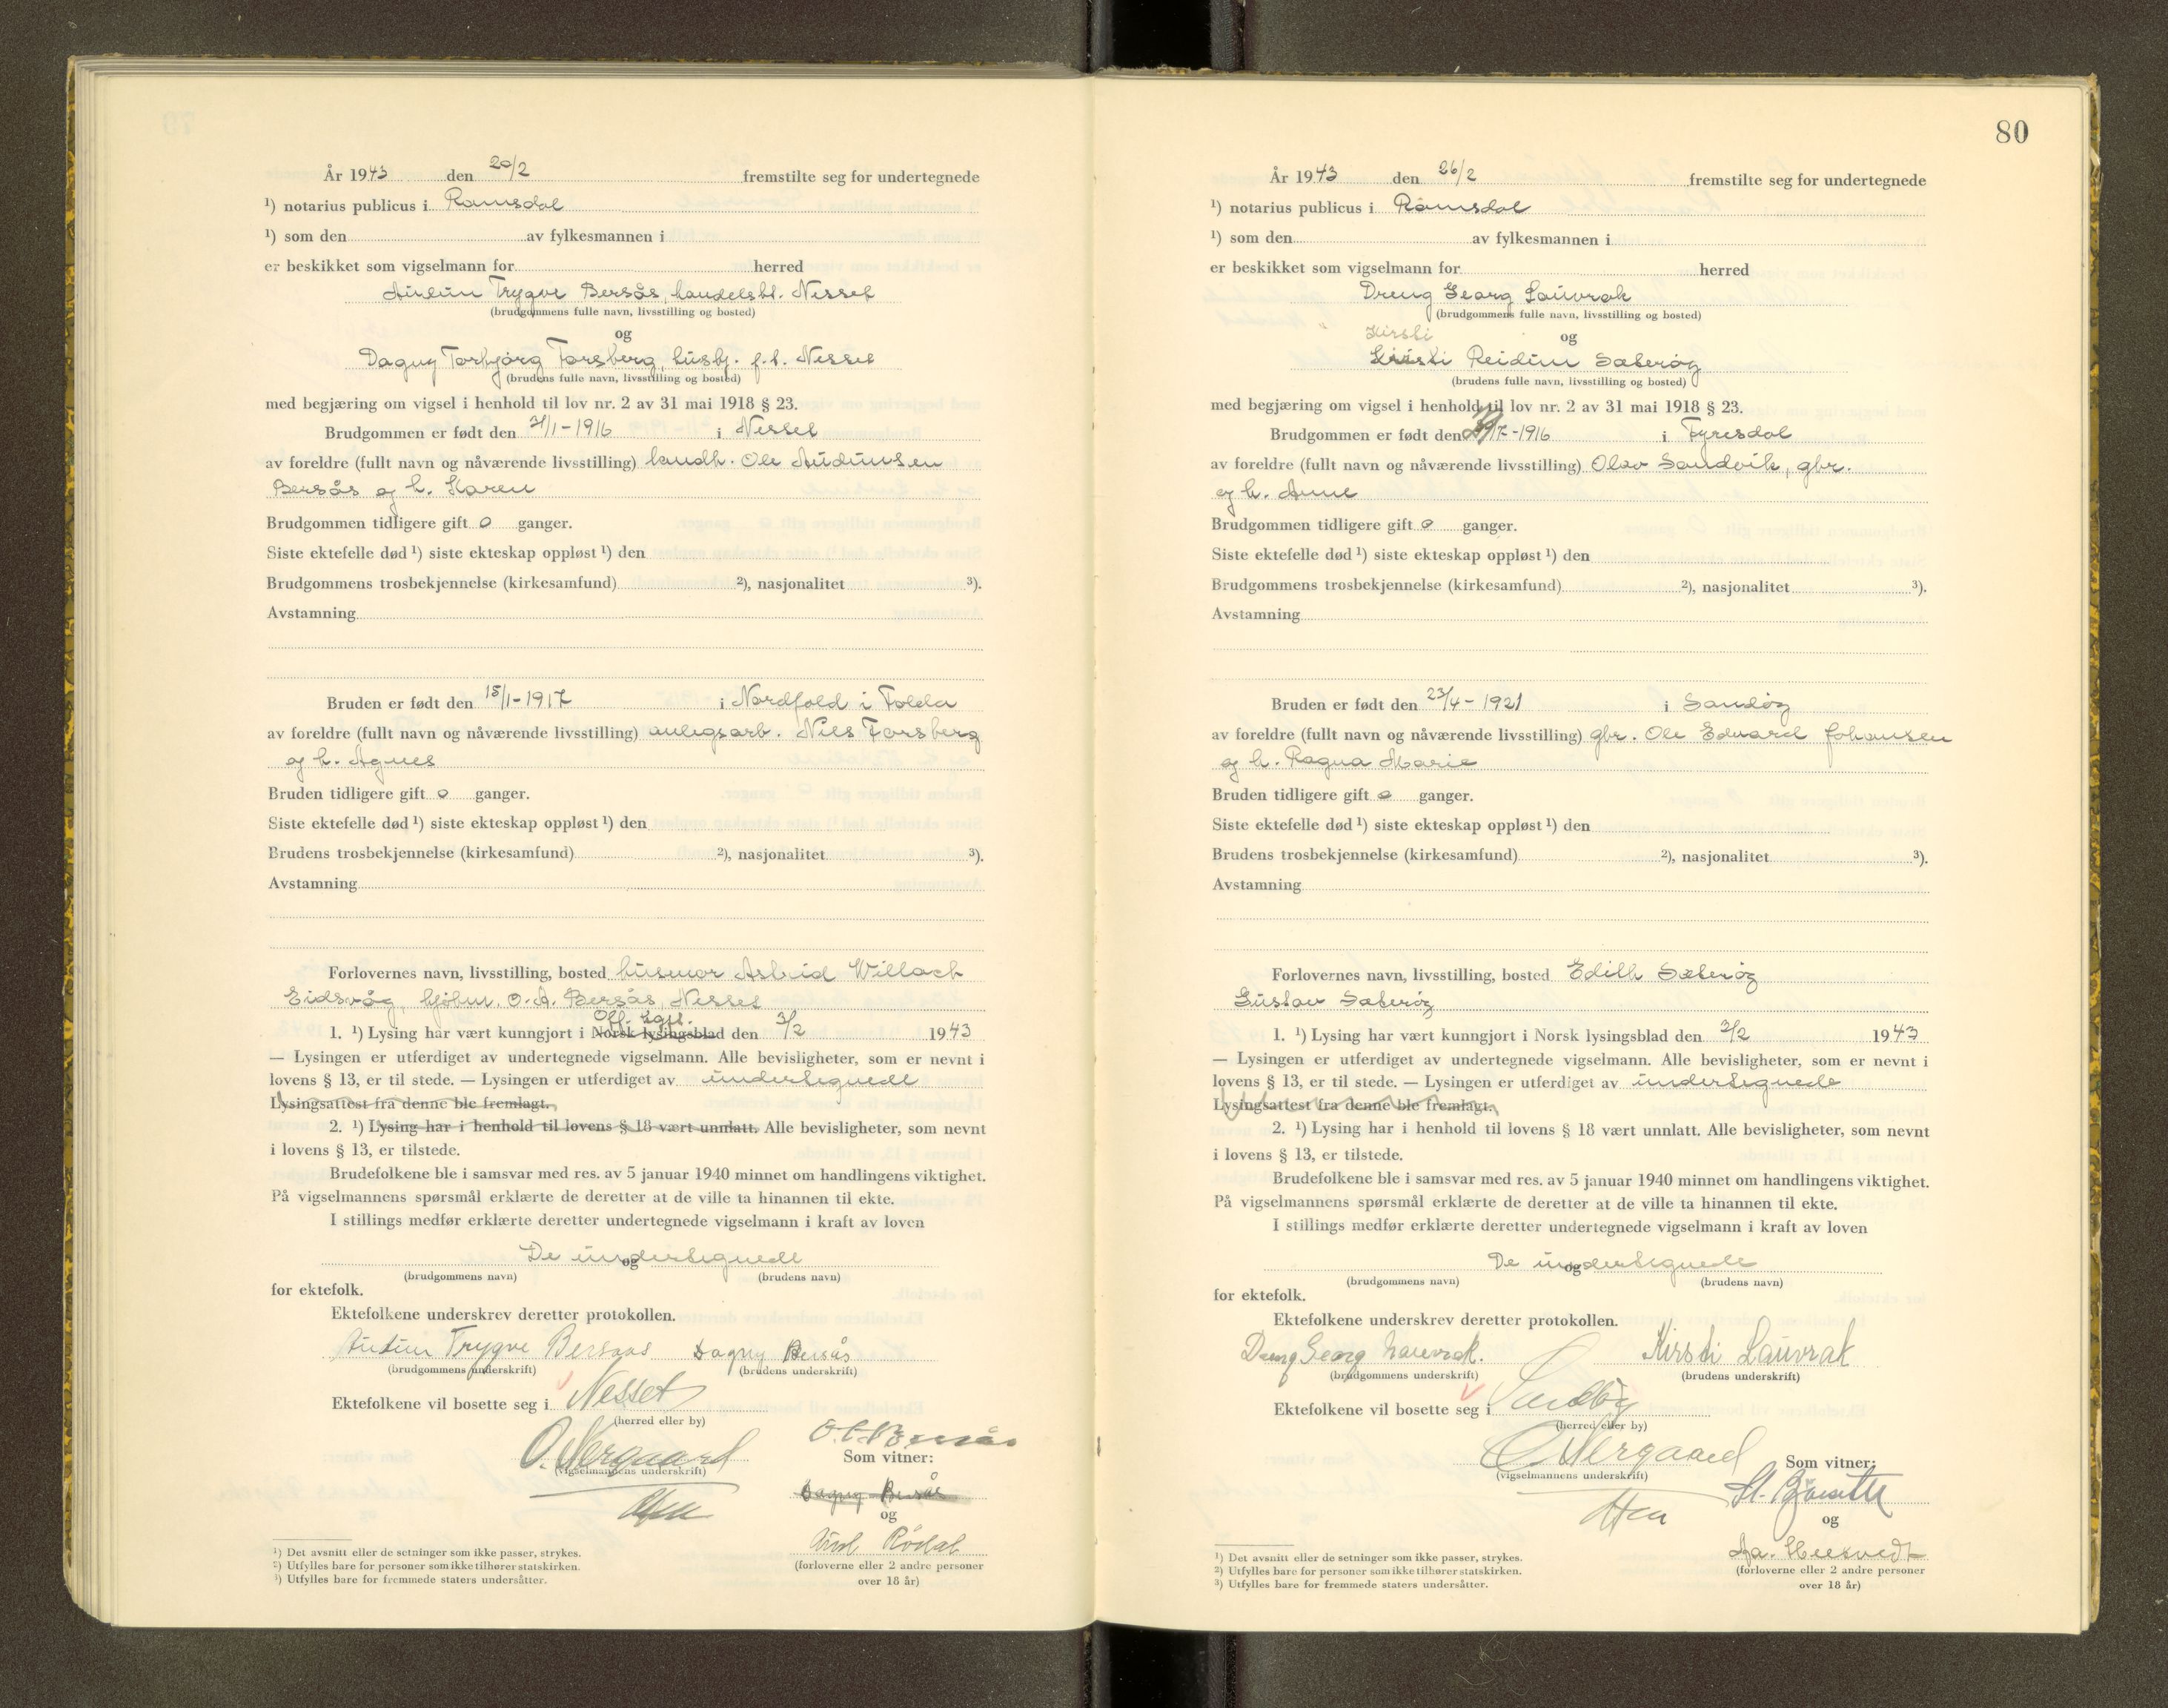 År 1943 den 20/2 fremstilte seg for undertegnede
¹) notarius publicus i Romsdal
¹) som den av fylkesmannen i
er beskikket som vigselmann for herred
Audun Trygve Bersås, handelsbt. Nesset
(brudgommens fulle navn, livsstilling og bosted)
og
Dagny Torbjørg Forsberg, husbj. f.t. Nesset
(brudens fulle navn, livsstilling og bosted)
med begjæring om vigsel i henhold til lov nr. 2 av 31 mai 1918 § 23.
Brudgommen er født den 21/1-1916 i Nesset
av foreldre (fullt navn og nåværende livsstilling) landh. Ole Audunsen
Bersås og h. Karen
Brudgommen tidligere gift 0 ganger.
Siste ektefelle død ¹) siste ekteskap oppløst ¹) den
Brudgommens trosbekjennelse (kirkesamfund) ²), nasjonalitet ³).
Avstamning
Bruden er født den 15/1-1917 i Nordfold i Folda
av foreldre (fullt navn og nåværende livsstilling) anlegsarb. Nils Forsberg
og h. Agnes
Bruden tidligere gift 0 ganger.
Siste ektefelle død ¹) siste ekteskap oppløst ¹) den
Brudens trosbekjennelse (kirkesamfund) ²), nasjonalitet ³).
Avstamning
Forlovernes navn, livsstilling, bosted husmor Astrid Willoch
Eidsvåg, kjøbm. O. A. Bersås, Nesset
Off. kgjt.
1. ¹) Lysing har vært kunngjort i Norsk lysingsblad den 3/2 1943
— Lysingen er utferdiget av undertegnede vigselmann. Alle bevisligheter, som er nevnt i
lovens § 13, er til stede. — Lysingen er utferdiget av undertegnede
Lysingsattest fra denne ble fremlagt.
2. ¹) Lysing har i henhold til lovens § 18 vært unnlatt. Alle bevisligheter, som nevnt
i lovens § 13, er tilstede.
Brudefolkene ble i samsvar med res. av 5 januar 1940 minnet om handlingens viktighet.
På vigselmannens spørsmål erklærte de deretter at de ville ta hinannen til ekte.
I stillings medfør erklærte deretter undertegnede vigselmann i kraft av loven
De undertegnede
og
(brudgommens navn) (brudens navn)
for ektefolk.
Ektefolkene underskrev deretter protokollen.
Audun Trygve Bersaas Dagny Bersås
(brudgommens underskrift) (brudens underskrift)
Ektefolkene vil bosette seg i Nesset
(herred eller by)
O. A. Bersås
O. Nergaard Som vitner:
(vigselmannens underskrift)
Dagny Bersås
og
Rödal
(forloverne eller 2 andre personer
over 18 år)
¹) Det avsnitt eller de setninger som ikke passer, strykes.
²) Utfylles bare for personer som ikke tilhører statskirken.
³) Utfylles bare for fremmede staters undersåtter.
80
År 1943 den 26/2 fremstilte seg for undertegnede
¹) notarius publicus i Romsdal
¹) som den av fylkesmannen i
er beskikket som vigselmann for herred
Dreng Georg Lauvrak
(brudgommens fulle navn, livsstilling og bosted)
Kirsti
og
Kirsti Reidun Sæterøy
(brudens fulle navn, livsstilling og bosted)
med begjæring om vigsel i henhold til lov nr. 2 av 31 mai 1918 § 23.
Brudgommen er født den /7-1916 i Fyresdal
av foreldre (fullt navn og nåværende livsstilling) Olav Sandvik, gbr.
og h. Anne
Brudgommen tidligere gift 0 ganger.
Siste ektefelle død ¹) siste ekteskap oppløst ¹) den
Brudgommens trosbekjennelse (kirkesamfund) ²), nasjonalitet ³).
Avstamning
Bruden er født den 23/4-1921 i Sandøy
av foreldre (fullt navn og nåværende livsstilling) gbr. Ole Edvard Johansen
og h. Ragna Marie
Bruden tidligere gift 0 ganger.
Siste ektefelle død ¹) siste ekteskap oppløst ¹) den
Brudens trosbekjennelse (kirkesamfund) ²), nasjonalitet ³).
Avstamning
Forlovernes navn, livsstilling, bosted Edith Sæterøy
Gustav Sæterøy
1. ¹) Lysing har vært kunngjort i Norsk lysingsblad den 3/2 1943
— Lysingen er utferdiget av undertegnede vigselmann. Alle bevisligheter, som er nevnt i
lovens § 13, er til stede. — Lysingen er utferdiget av undertegnede
Lysingsattest fra denne ble fremlagt.
2. ¹) Lysing har i henhold til lovens § 18 vært unnlatt. Alle bevisligheter, som nevnt
i lovens § 13, er tilstede.
Brudefolkene ble i samsvar med res. av 5 januar 1940 minnet om handlingens viktighet.
På vigselmannens spørsmål erklærte de deretter at de ville ta hinannen til ekte.
I stillings medfør erklærte deretter undertegnede vigselmann i kraft av loven
De undertegnede
og
(brudgommens navn) (brudens navn)
for ektefolk.
Ektefolkene underskrev deretter protokollen.
Dreng Georg Lauvrak. Kirsti Lauvrak
(brudgommens underskrift) (brudens underskrift)
Ektefolkene vil bosette seg i Sandøy
(herred eller by)
O. Nergaard Som vitner:
(vigselmannens underskrift)
og
(forloverne eller 2 andre personer
over 18 år)
¹) Det avsnitt eller de setninger som ikke passer, strykes.
²) Utfylles bare for personer som ikke tilhører statskirken.
³) Utfylles bare for fremmede staters undersåtter.